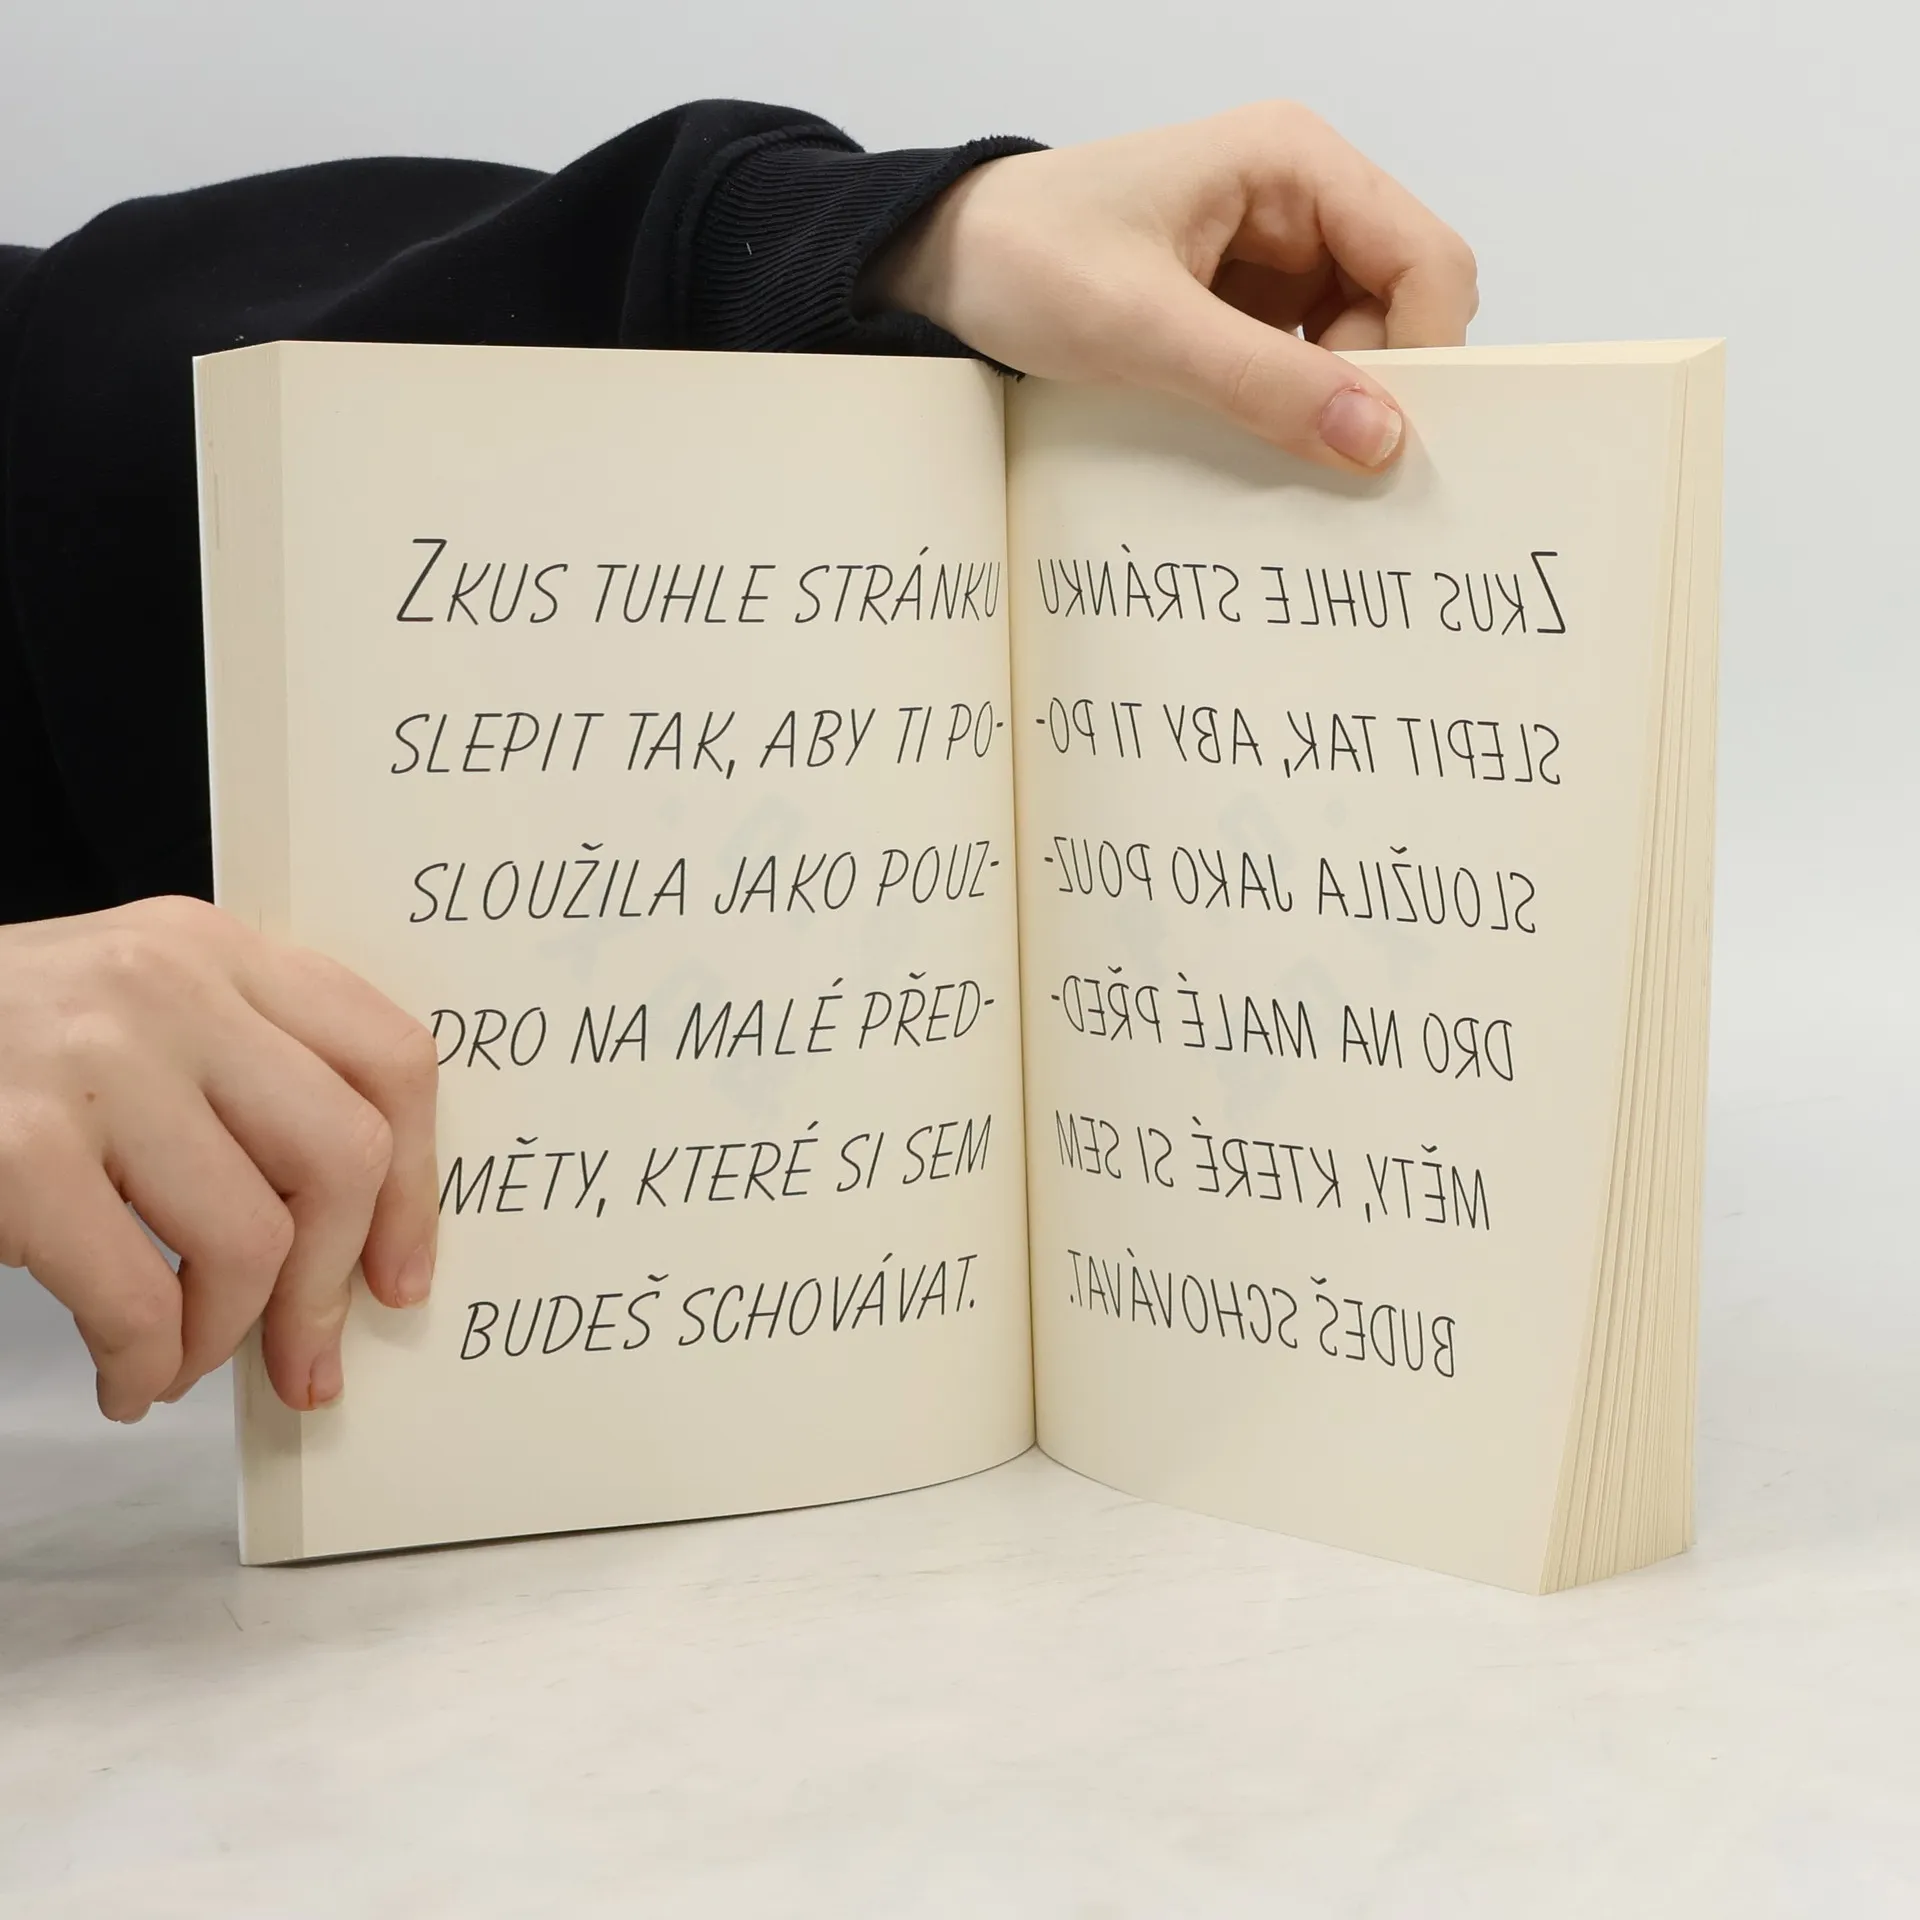 ZKUS TUHLE STRÁNKU
SLEPIT TAK, ABY TI PO-
SLOUŽILA JAKO POUZ-
DRO NA MALÉ PŘED-
MĚTY, KTERÉ SI SEM
BUDEŠ SCHOVÁVAT.
ZKUS TUHLE STRÁNKU
SLEPIT TAK, ABY TI PO-
SLOUŽILA JAKO POUZ-
DRO NA MALÉ PŘED-
MĚTY, KTERÉ SI SEM
BUDEŠ SCHOVÁVAT.